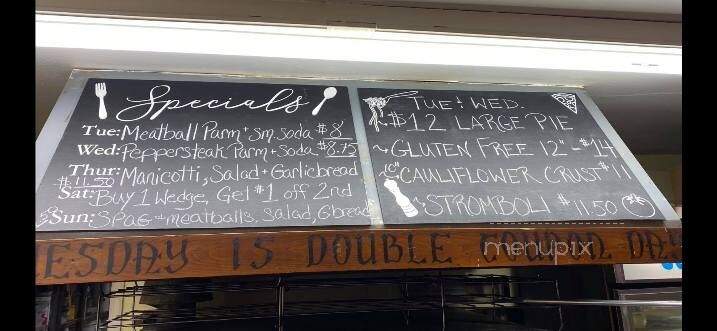 Specials
Tue: Meatball Parm + Sm. Soda $8
Wed: Peppersteak Parm + Soda $8.75
Thur: Manicotti, Salad + Garlicbread
$11.50
Sat: Buy 1 Wedge, Get $1 off 2nd
Sun: Spag + meatballs, Salad, Gbread
Tue & Wed.
~$12 LARGE PIE
~GLUTEN FREE 12" - $14
~CAULIFLOWER CRUST $11
~STROMBOLI $11.50
ESDAY IS DOUBLE COUPON DA
menupix